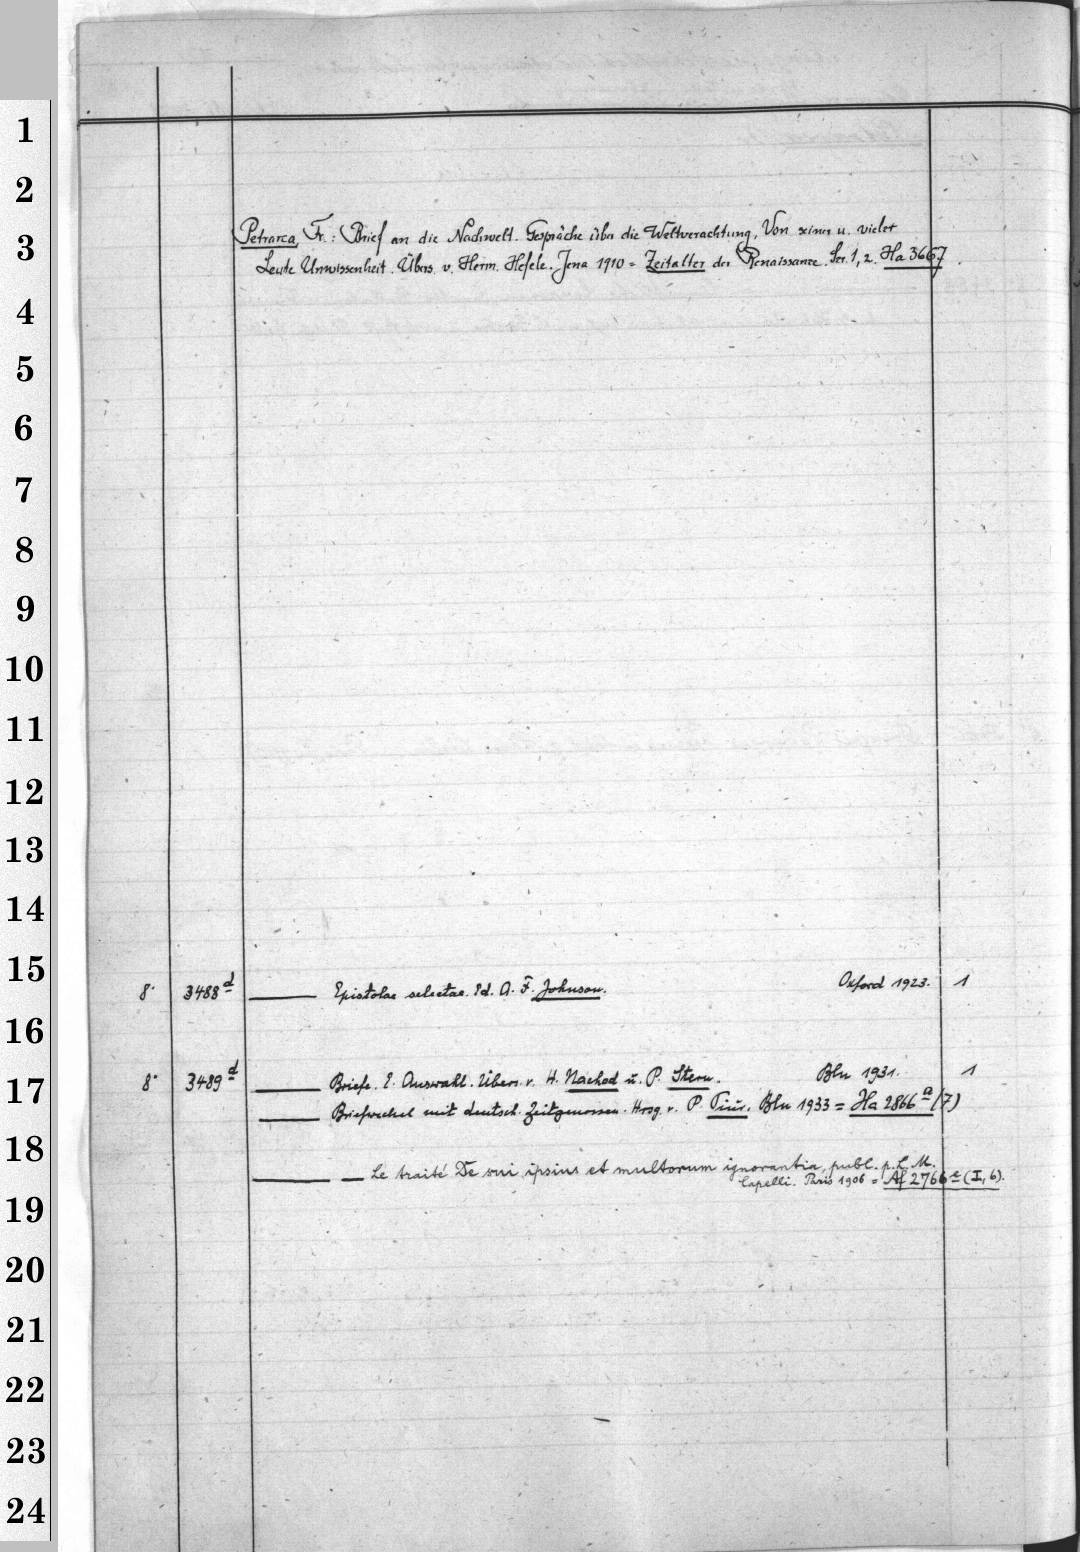 1
2
3
4
5
6
7
8
9
10
11
12
13
14
15
16
17
18
19
20
21
22
23
24
Petrarca, Fr.: Brief an die Nachwelt. Gespräche über die Weltverachtung, Von seiner u. vieler
Leute Unwissenheit. Übers. v. Herm. Hefele. Jena 1910 = Zeitalter der Renaissance. Ser. 1, 2. Ha 3667
8° 3488 d ——— Epistolae selectae. Ed. A. F. Johnson. Oxford 1923. 1
8° 3489 d ——— Briefe. E. Auswahl. Übers. v. H. Nachod u. P. Stern. Bln 1931. 1
——— Briefwechsel mit deutsch. Zeitgenossen. Hrsg. v. P. Piur. Bln 1933 = Ha 2866 a (7)
——— — Le traité De sui ipsius et multorum ignorantia, publ. p. L. M.
Capelli. Paris 1906 = Af 2766 a (I, 6).